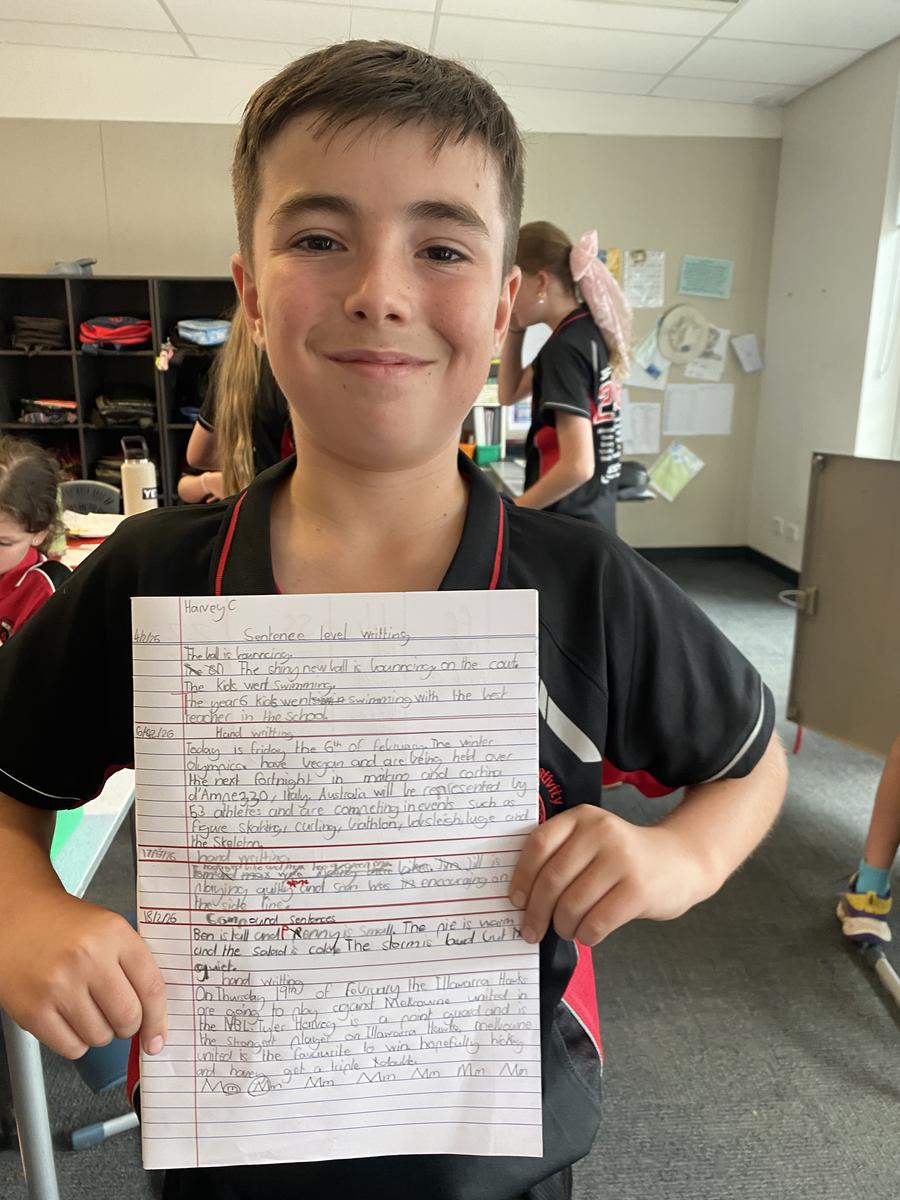 Harvey C
4/2/26 Sentence level writting
The ball is bouncing.
The shiny new ball is bounncing, on the cout.
The Kids went Swimming.
the year 6 kids went swimming with the best
teacher in the school.
6/02/26 Hand writting
Today is friday the 6th of february. The winter
Olympics have vegan and are being held over
the next fortnight in malino and cortina
d'Ampezzo, Italy. Australia will be represented by
53 athletes and are competing in events such as
figure skating, curling, biathlon, luge and
the Skeleton.
hand writting
Jill is
playing guilty and Sean was encouraging on
the side line.
18/2/26 Compound sentences
Ben is tall and Penny is small. The pie is warm
and the salad is cold. The storm is but
quiet.
hand writting
On Thursday 19th of february the Illawarra Hawks
are going to play against Melbourne united in
the NBL. Tyler Harvey is a point guard and is
the strongest player on Illawarra Hawks. melbourne
united is the favourite to win hopefully hickey
and harvey get a triple
Mm Mm Mm Mm Mm Mm Mm
YE